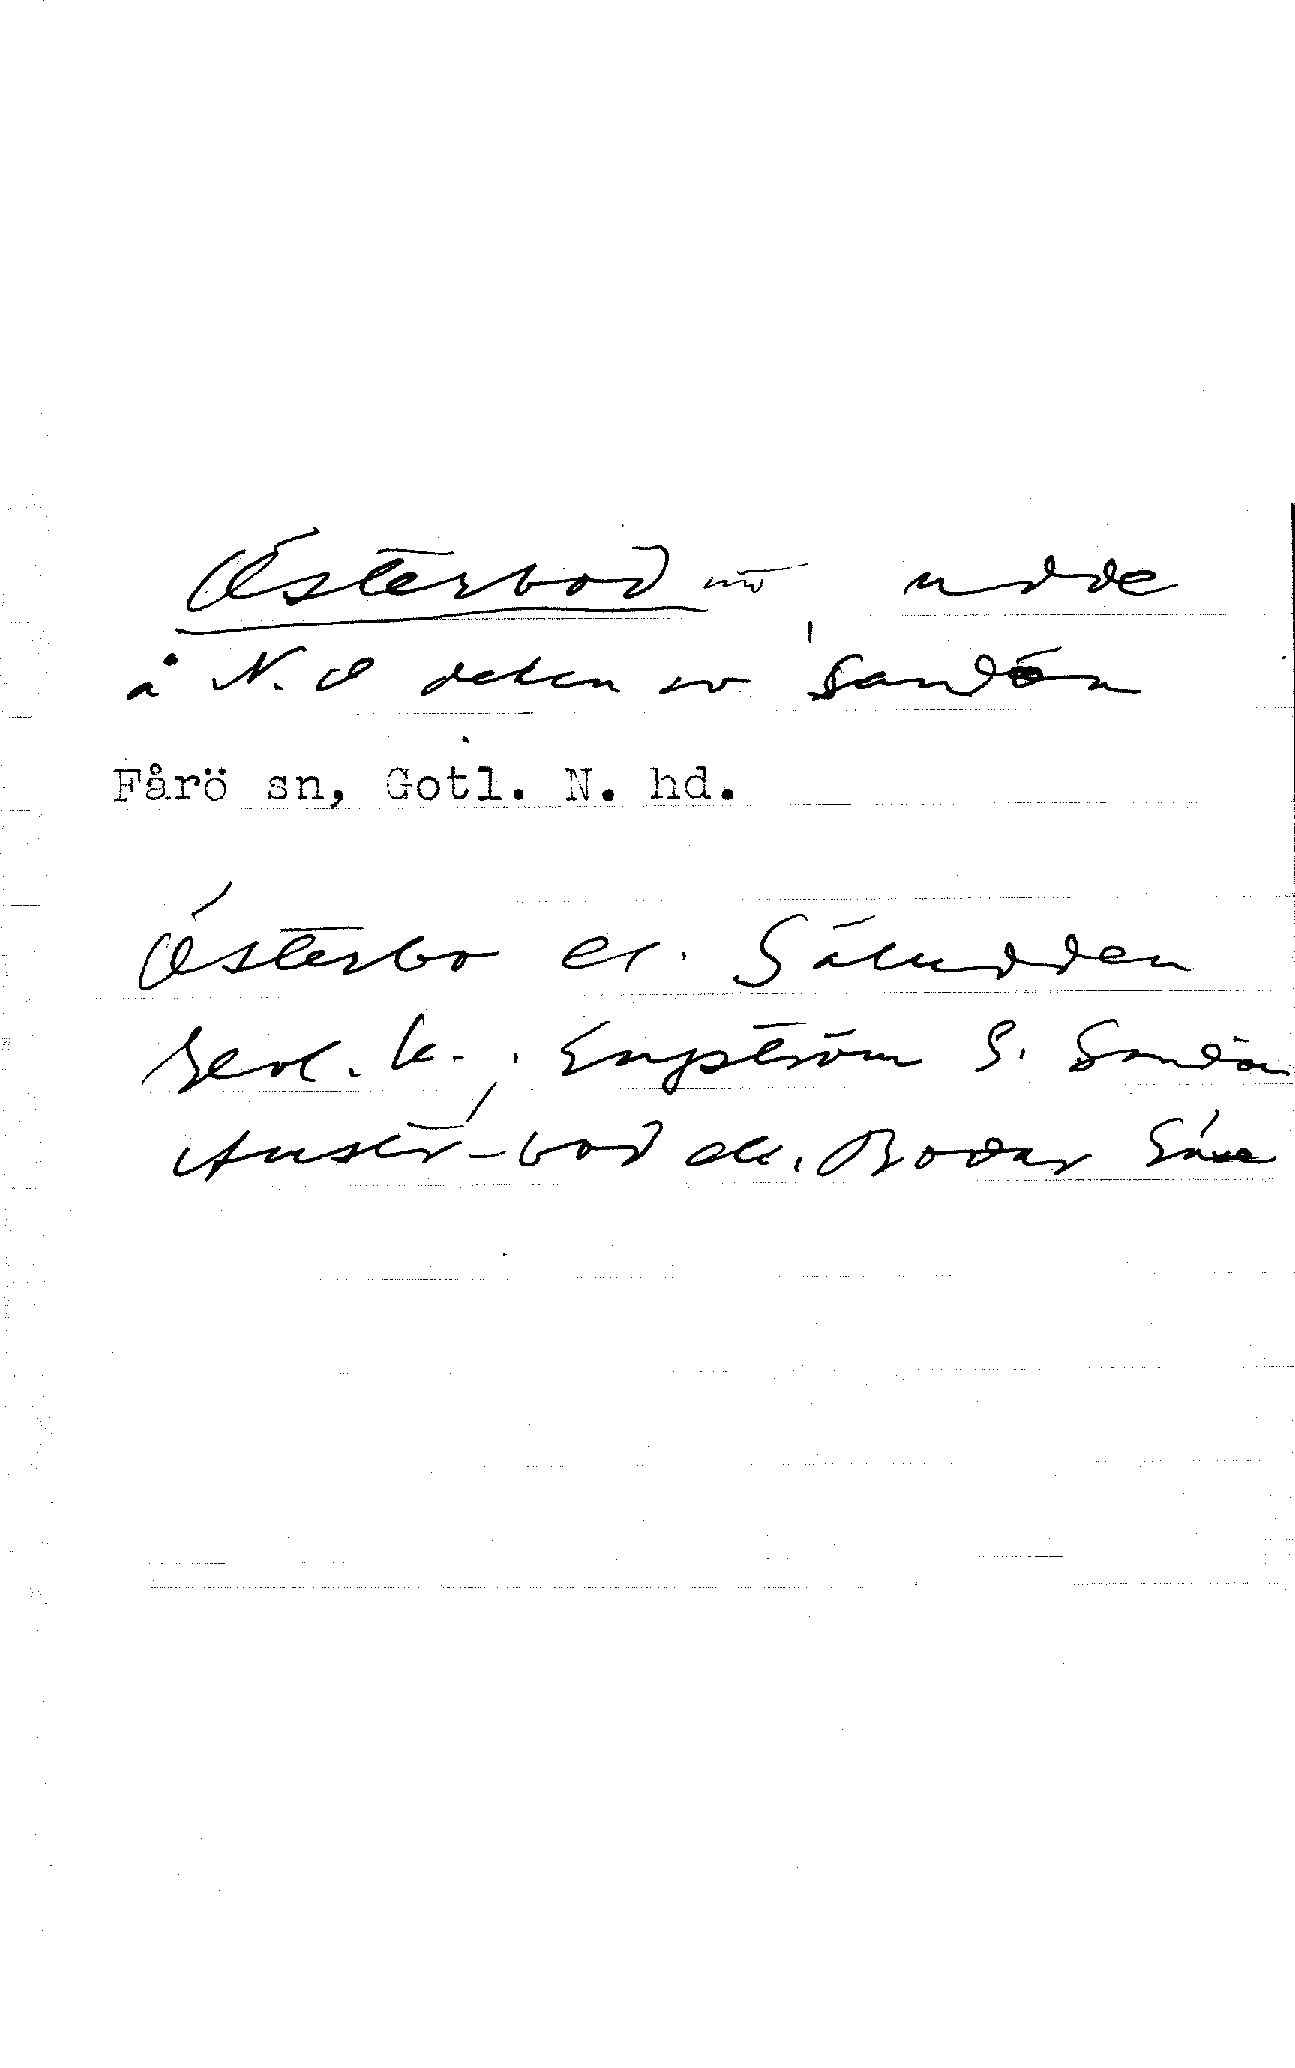 Österbod udde
å N.O delen av Sandön
Fårö sn, Gotl. N. hd.
Österbo el. Säludden
Geol. k., Engström G. Sandön
Austr-bod el. Bodar Säve